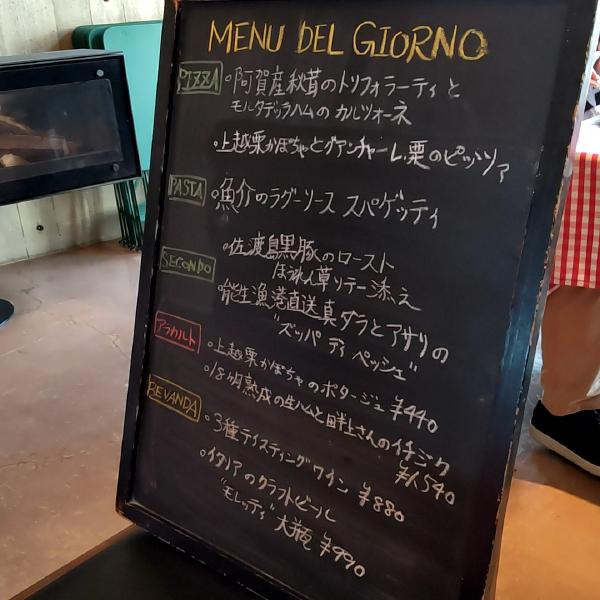 MENU DEL GIORNO
PIZZA
○阿賀産秋茸のトリフォラーティと
モルタデッラハムのカルツォーネ
○上越栗かぼちゃとグアンチャーレ、栗のピッツァ
PASTA
○魚介のラグーソース スパゲッティ
SECONDO
○佐渡島黒豚のロースト
ほうれん草ソテー添え
○能生漁港直送真ダラとアサリの
"ズッパ ディ ペッシェ"
アラカルト
○上越栗かぼちゃのポタージュ ¥440
○18ヶ月熟成の生ハムと畔上さんのイチジク
¥1,540
BEVANDA
○3種テイスティングワイン ¥880
○イタリアのクラフトビール
"モレッティ" 大瓶 ¥990